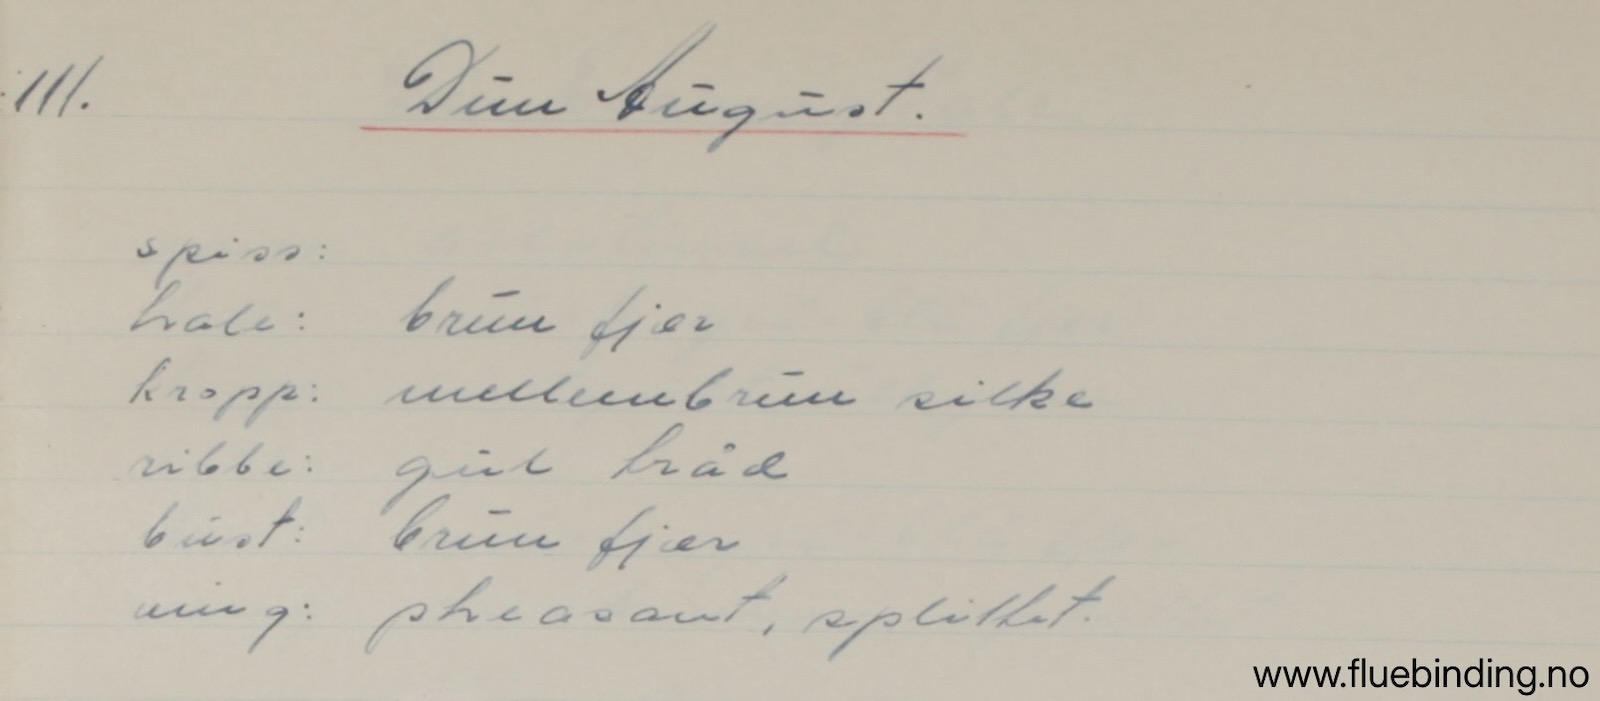 111. Dun August.
spiss:
hale: brun fjær
kropp: mellembrun silke
ribbe: gul tråd
bust: brun fjær
ving: pheasant, splittet.
www.fluebinding.no